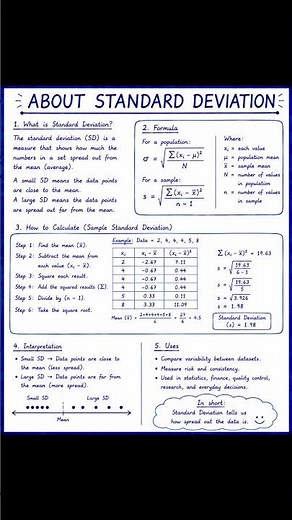 ABOUT STANDARD DEVIATION
1. What is Standard Deviation?
The standard deviation (SD) is a
measure that shows how much the
numbers in a set spread out from
the mean (average).
A small SD means the data points
are close to the mean.
A large SD means the data points
are spread out far from the mean.
2. Formula
For a population:
σ = √( Σ(xᵢ - μ)² / N )
For a sample:
s = √( Σ(xᵢ - x̄)² / n - 1 )
Where:
xᵢ = each value
μ = population mean
x̄ = sample mean
N = number of values
in population
n = number of values
in sample
3. How to Calculate (Sample Standard Deviation)
Step 1: Find the mean (x̄).
Step 2: Subtract the mean from
each value (xᵢ - x̄).
Step 3: Square each result.
Step 4: Add the squared results (Σ).
Step 5: Divide by (n - 1).
Step 6: Take the square root.
Example: Data = 2, 4, 4, 4, 5, 8
xᵢ xᵢ - x̄ (xᵢ - x̄)²
2 -2.67 7.11
4 -0.67 0.44
4 -0.67 0.44
4 -0.67 0.44
5 0.33 0.11
8 3.33 11.09
Mean (x̄) = 2+4+4+4+5+8 / 6 = 27 / 6 = 4.5
Σ(xᵢ - x̄)² = 19.63
s = √( 19.63 / 6 - 1 )
s = √( 19.63 / 5 )
s = √3.926
s = 1.98
Standard Deviation
(s) = 1.98
4. Interpretation
• Small SD → Data points are close to
the mean (less spread).
• Large SD → Data points are far from
the mean (more spread).
Small SD
Large SD
Mean
5. Uses
• Compare variability between datasets.
• Measure risk and consistency.
• Used in statistics, finance, quality control,
research, and everyday decisions.
In short:
Standard Deviation tells us
how spread out the data is.